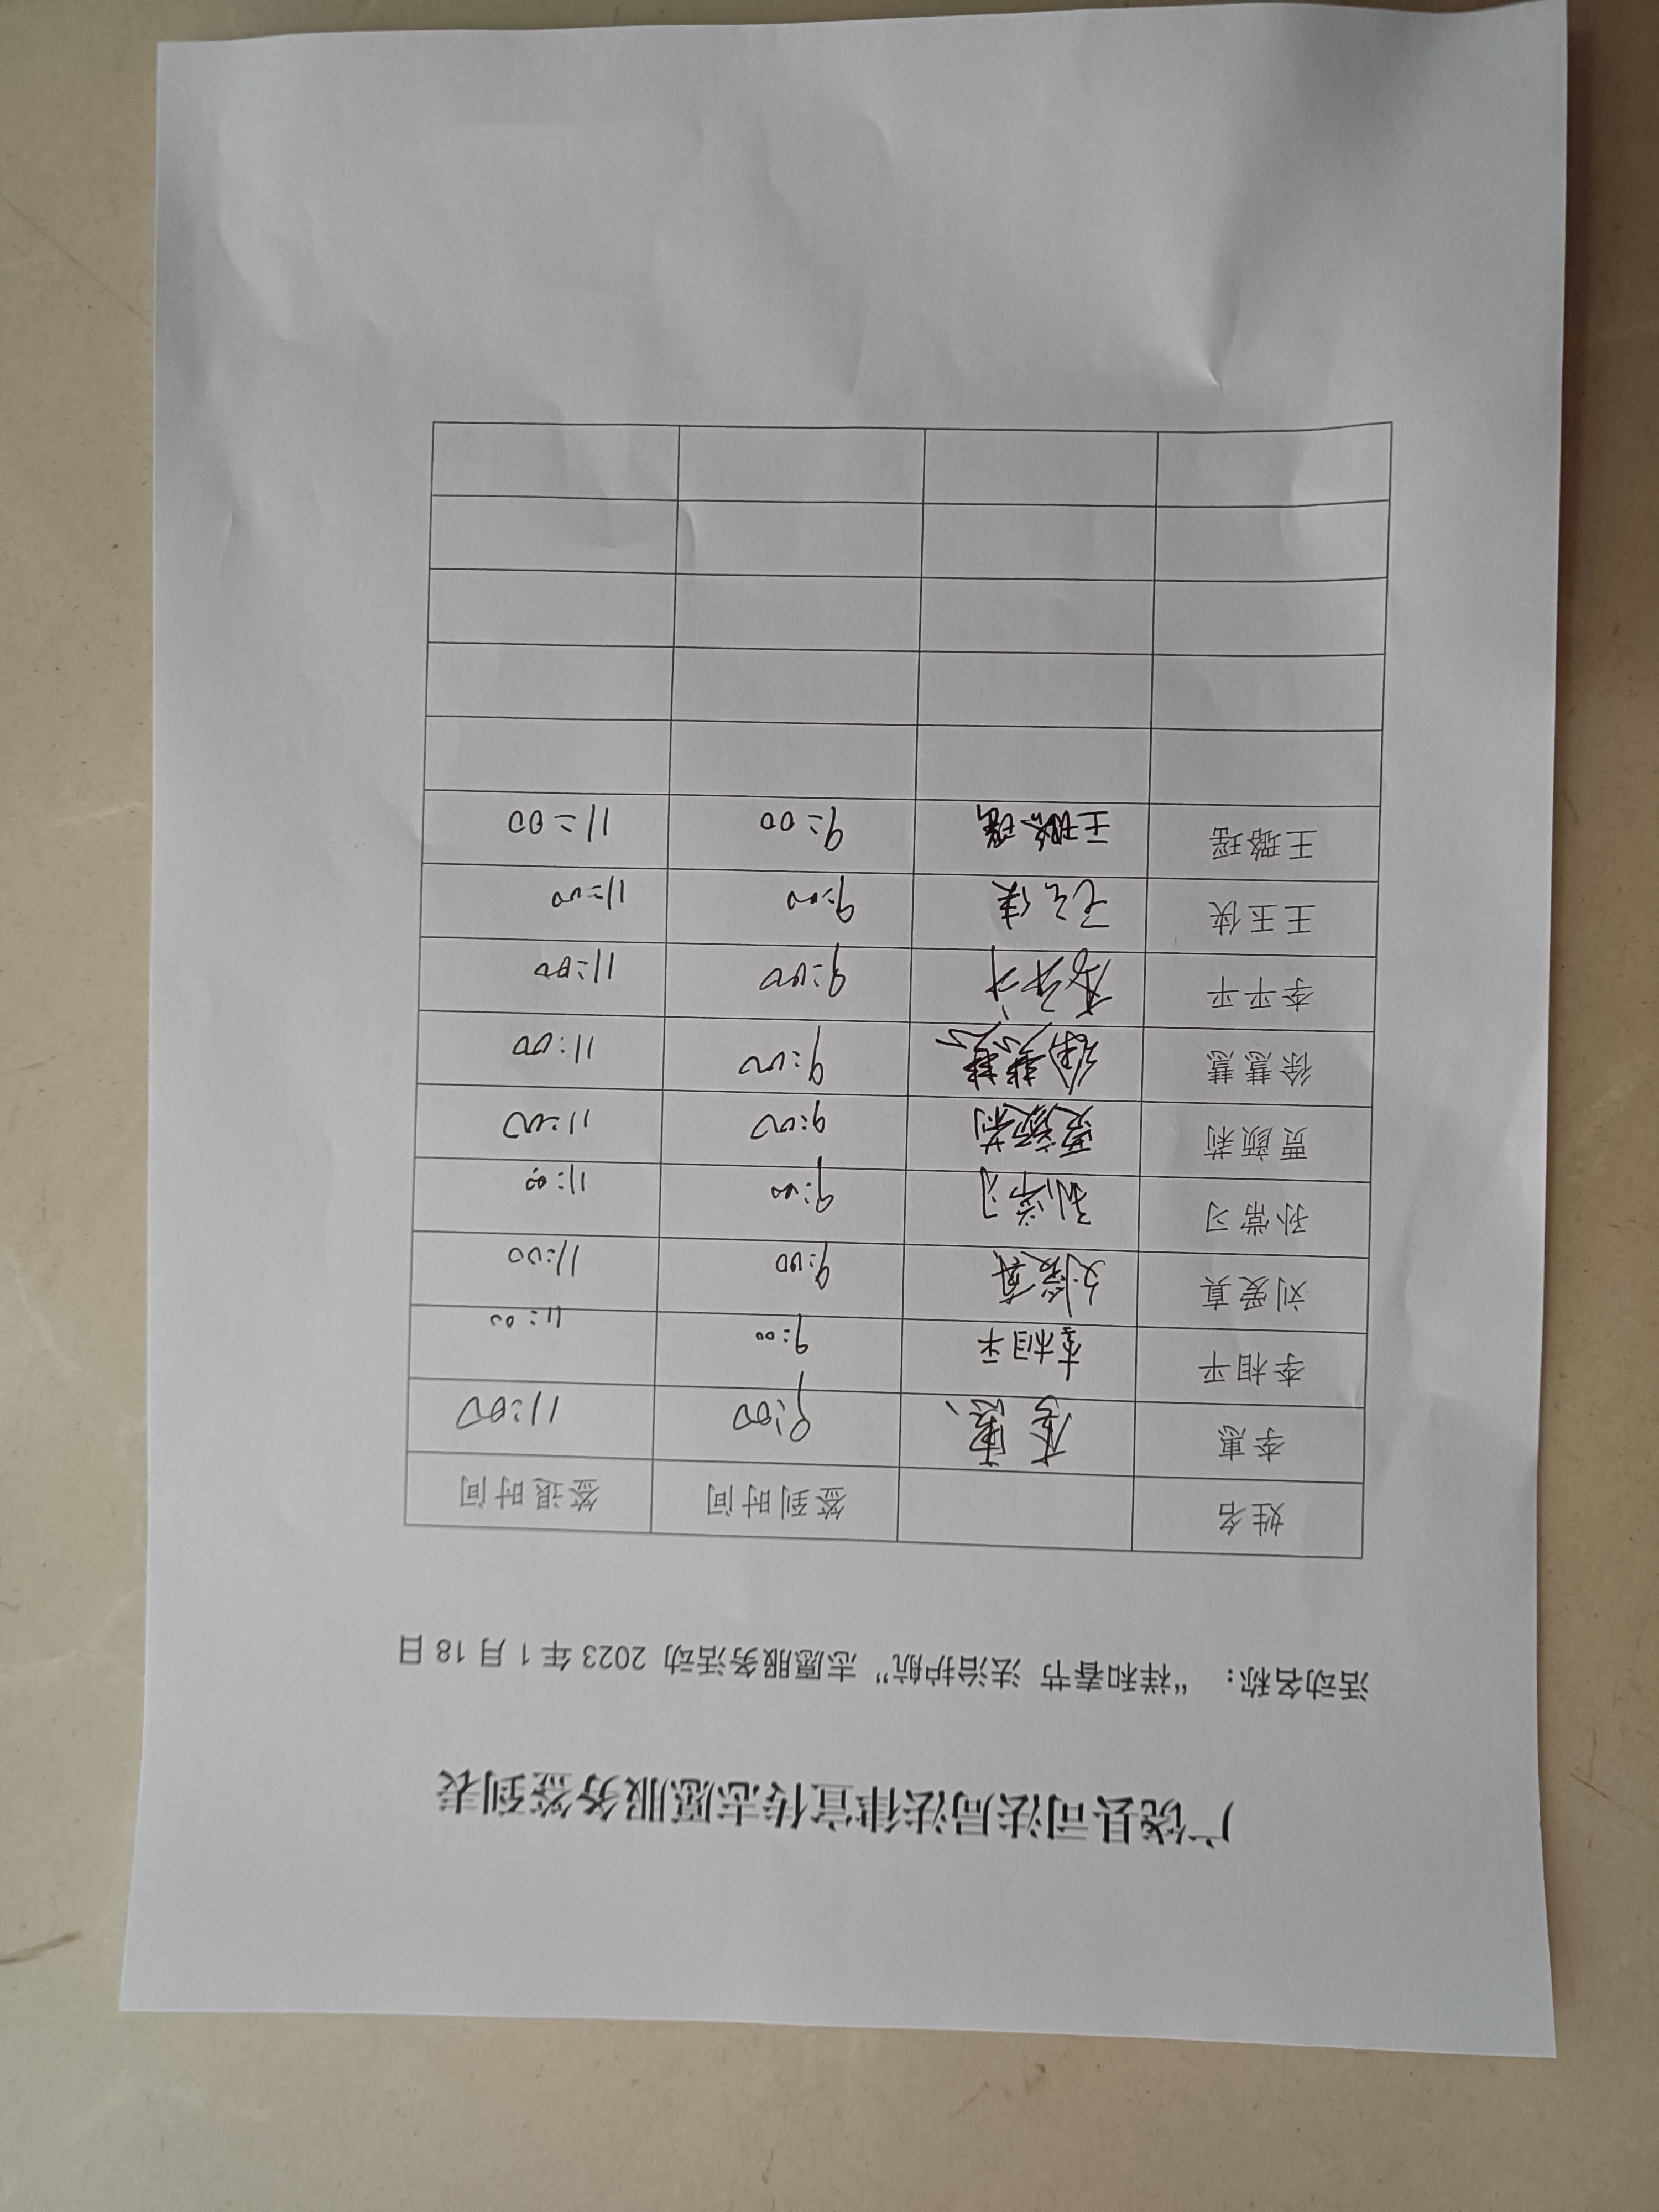 广饶县司法局法律宣传志愿服务签到表
活动名称： “祥和春节 法治护航” 志愿服务活动 2023 年 1 月 18 日
姓名 签到时间 签退时间
李惠 李惠 9:00 11:00
李相平 李相平 9:00 11:00
刘爱真 刘爱真 9:00 11:00
孙常习 孙常习 9:00 11:00
贾颜莉 贾颜莉 9:00 11:00
徐慧慧 徐慧慧 9:00 11:00
李平平 李平平 9:00 11:00
王玉侠 王玉侠 9:00 11:00
王璐瑶 王璐瑶 9:00 11:00